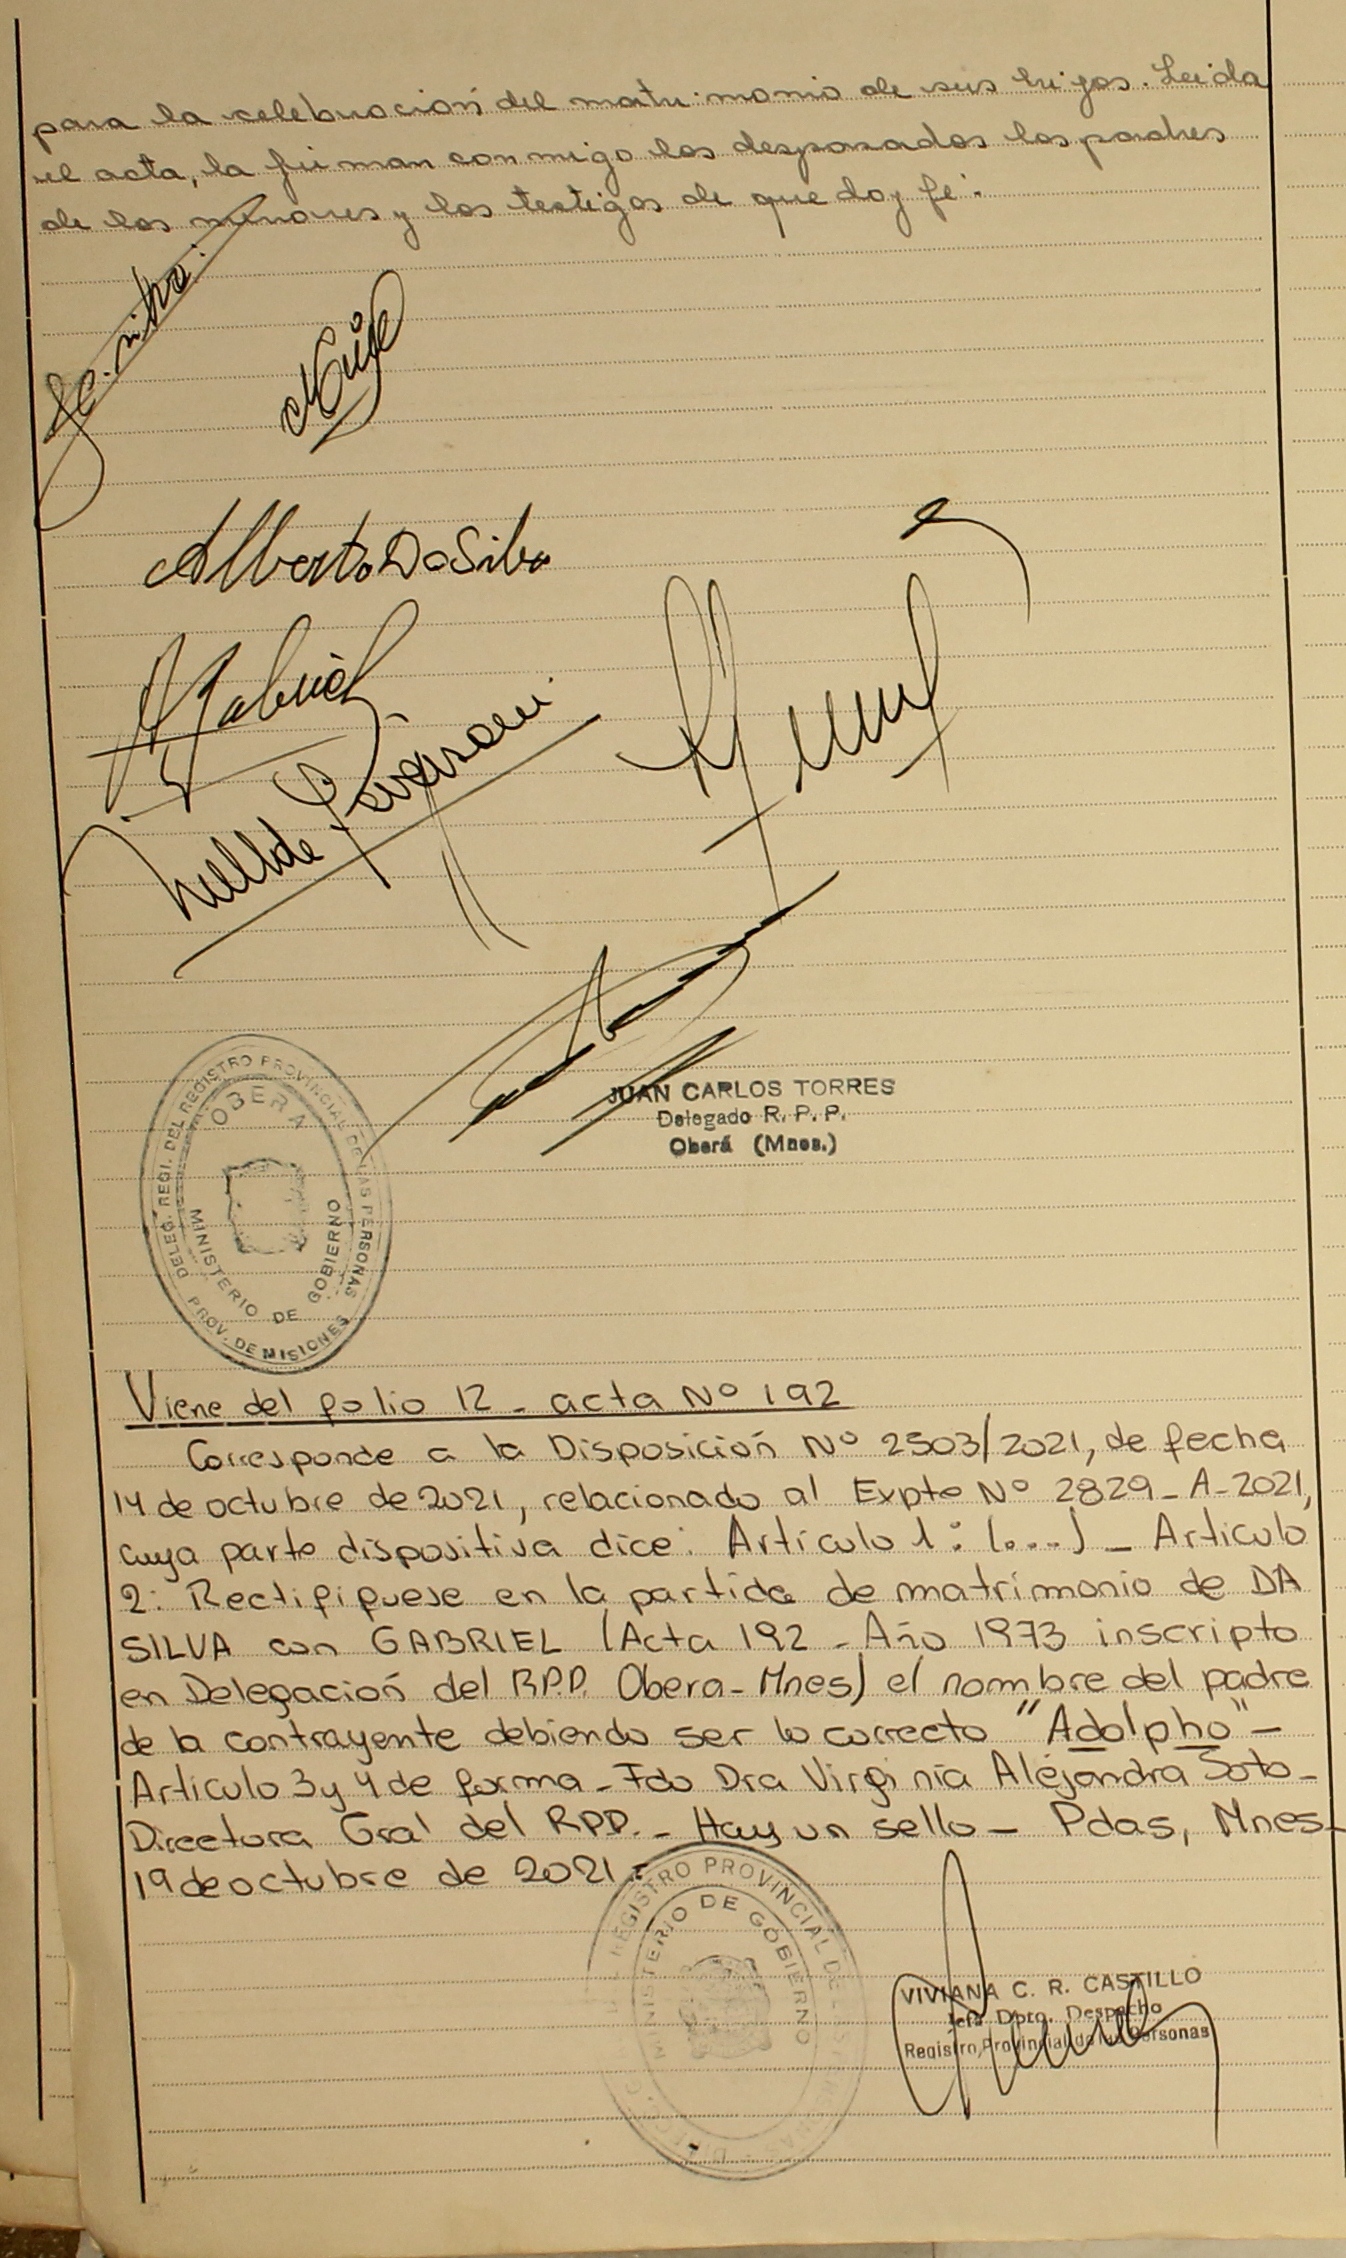 para la celebracion del matrimonio de sus hijos. Leida
el acta, la firman conmigo los desposados los padres
de los menores y los testigos de que doy fe.
Alberto Da Silva
Gabriel
DELEG. REGI. DEL REGISTRO PROVINCIAL DE LAS PERSONAS
OBERA
MINISTERIO DE GOBIERNO
PROV. DE MISIONES
JUAN CARLOS TORRES
Delegado R. P. P.
Oberá (Mnes.)
Viene del folio 12 - acta Nº 192
Corresponde a la Disposición Nº 2503/2021, de fecha
14 de octubre de 2021, relacionado al Expte Nº 2829-A-2021,
cuya parte dispositiva dice: Artículo 1: (...) - Artículo
2: Rectifiquese en la partida de matrimonio de DA
SILVA con GABRIEL (Acta 192 - Año 1973 inscripto
en Delegación del R.P.P. Obera - Mnes) el nombre del padre
de la contrayente debiendo ser lo correcto "Adolpho" -
Artículo 3 y 4 de forma - Fdo Dra Virginia Alejandra Soto -
Directora Gral del RPP. - Hay un sello - Pdas, Mnes -
19 de octubre de 2021 -
REGISTRO PROVINCIAL DE LAS PERSONAS
MINISTERIO DE GOBIERNO
VIVIANA C. R. CASTILLO
Jefa Dpto. Despacho
Registro Provincial de las Personas